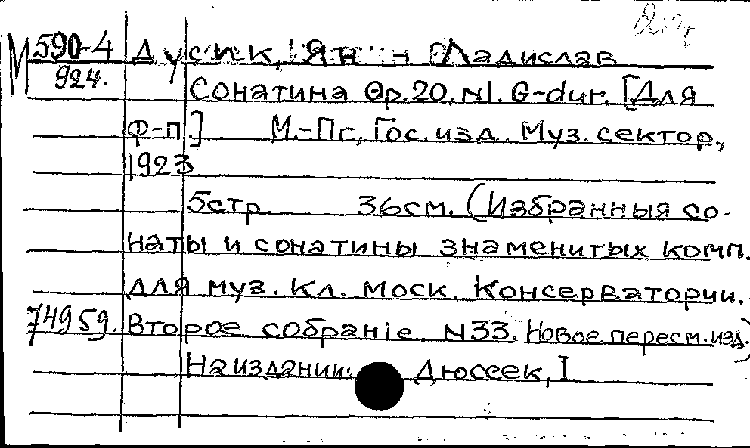 М 590-4 Дусик, Ян Ладислав
924.
Сонатина Op.20, N1. G-dur. [Для
ф-п.] М.-Пг., Гос. изд. Муз. сектор,
1923
5стр. 36см. (Избранныя со-
наты и сонатины знаменитых комп.
для муз. кл. Моск. Консерватории.
74959. Второе собранiе. N33. Новое пересм. изд.)
На издании: Дюссек, I